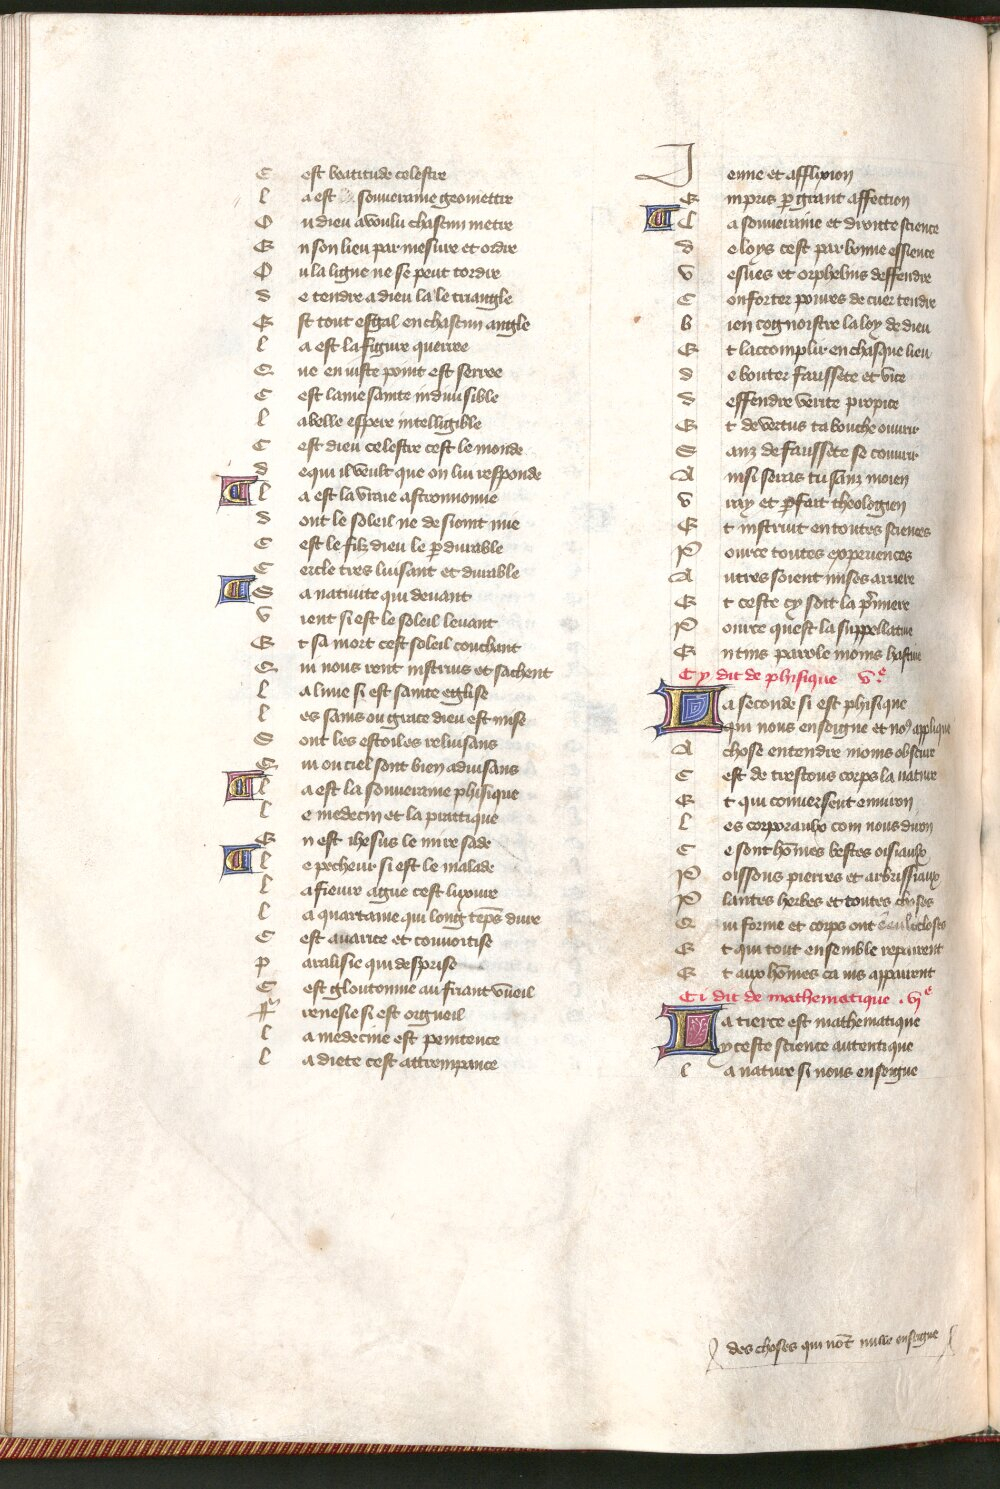 C est beatitude celestre
L a est souueraine geomettre
O u dieu a voulu chascun mettre
E n son lieu par mesure et ordre
O u la ligne ne se peut tordre
D e tendre a dieu la le triangle
E st tout esgal en chascun angle
L a est la figure querree
Q ue en iuste point est serree
C est lame sainte indiuisible
L a belle espere intelligible
C est dieu celestre cest le monde
D e qui il veult que on lui responde
L a est la vraie astronnomie
D ont le soleil ne desionit mie
C est le filz dieu le pdurable
C ercle tres luisant et durable
S a natiuite qui deuant
V ient si est le soleil leuant
E t sa mort cest soleil couchant
Q ui nous rent instruis et sachent
L a lune si est sainte eglise
L es sains ou grace dieu est mise
S ont les estoiles reluisans
Q ui ou ciel sont bien aduisans
L a est la souueraine phisique
L e medecin et la prattique
E n est ihesus le mire sade
L e pecheur si est le malade
L a fieure ague cest luxure
L a quartaine qui long teps dure
C est auarice et conuoitise
P aralisie qui desprise
C est gloutonnie au friant vueil
Fr renesie si est orgueil
L a medecine est penitence
L a diete cest attrempance
J eune et afflixion
E mpris p grant affection
L a souueraine et droitte science
D e loys cest par bonne essience
V esues et orphelins deffendre
C onforter poures de cuer tendre
B ien cognoistre la loy de dieu
E t laccomplir en chasque lieu
D ebouter faussete et vice
D effendre verite propice
E t de vertus ta bouche ouurir
S anz de faussete se couurir
A insi seras tu sanz moien
V ray et pfait theologien
E t instruit en toutes sciences
P ource toutes experiences
A utres soient mises arriere
E t ceste cy soit la pmiere
P ource quest la suppellatiue
E ntins parole moins hastiue
Cy dit de phisique ve
L a seconde si est phisique
Qui nous enseigne et no9 applique
A chose entendre moins obscure
C est de trestous corps la nature
E t qui conuersent enuiron
L es corporaulx com nous diron
C e sont homes bestes oisiaulx
P oissons pierres et arbrissiaux
P lantes herbes et toutes choses
Q ui forme et corps ont closes
E t qui tout ensemble repairent
E t aux homes ca ius appairent
Ci dit de mathematique . vie
L a tierce est mathematique
Cy ceste science autentique
L a nature si nous enseigne
des choses qui not nulle enseigne